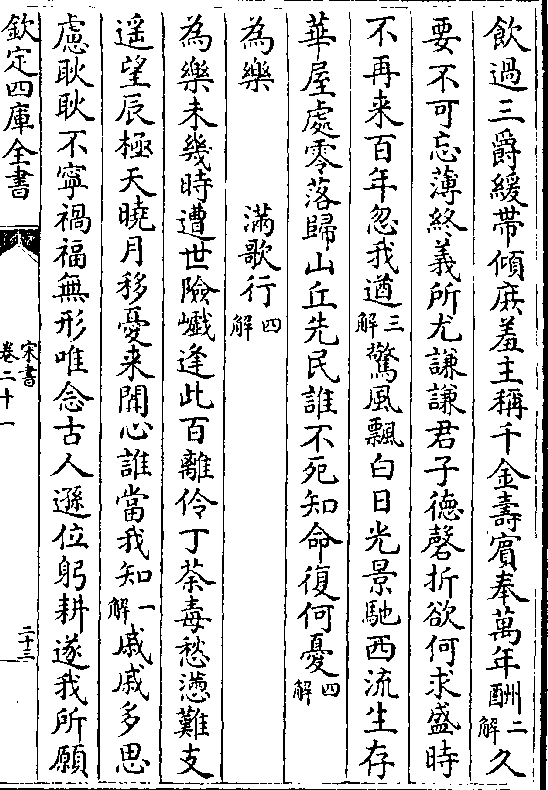 飲過三爵緩帶傾庶羞主稱千金壽賓奉萬年酬二解久
要不可忘薄終義所尤謙謙君子徳磬折欲何求盛時
不再来百年忽我遒三解驚風飄白日光景馳西流生存
華屋處零落歸山丘先民誰不死知命復何憂四解
為樂 滿歌行四解
為樂未幾時遭世險巇逢此百離伶丁荼毒愁懣難支
遥望辰極天曉月移憂来闐心誰當我知一解戚戚多思
慮耿耿不寧禍福無形唯念古人遜位躬耕遂我所願
欽定四庫全書
宋書
卷二十一
二十三